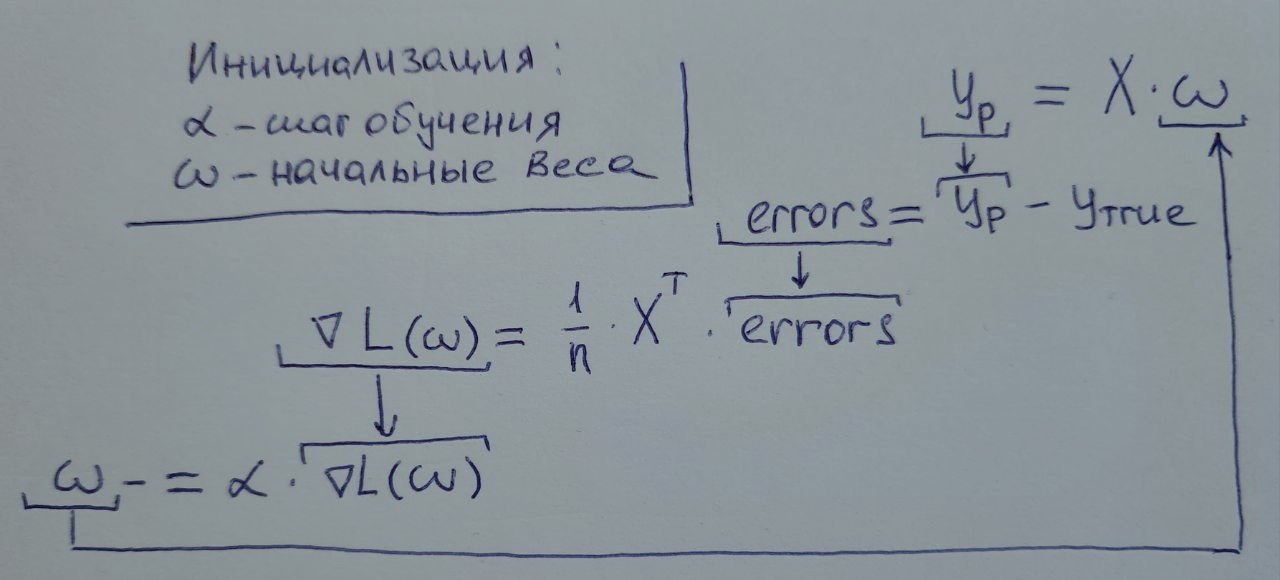 Инициализация:
α - шаг обучения
ω - начальные веса
yₚ = X · ω
errors = yₚ - yTrue
∇L(ω) = 1/n · Xᵀ · errors
ω -= α · ∇L(ω)